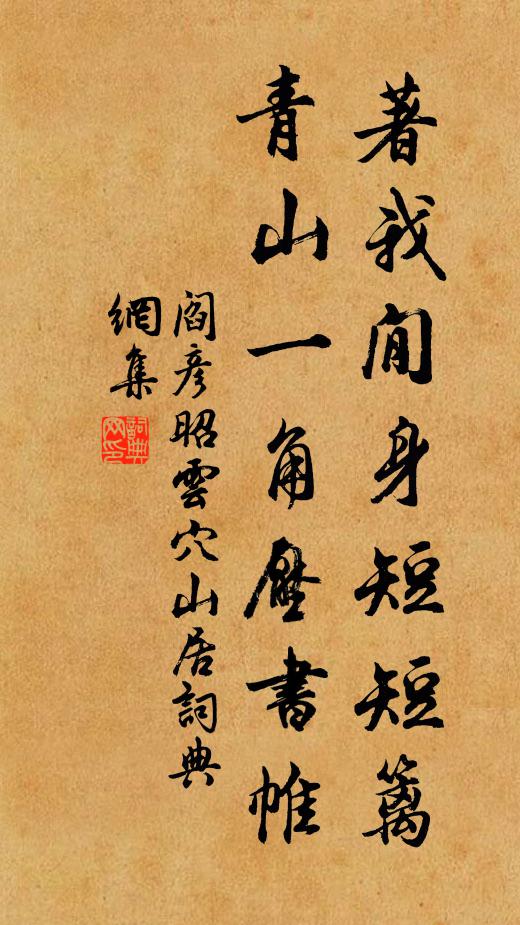 著我閒身短短籬
青山一角壓書帷
閻彥昭雲穴山居詞典
網集
詞典
网印